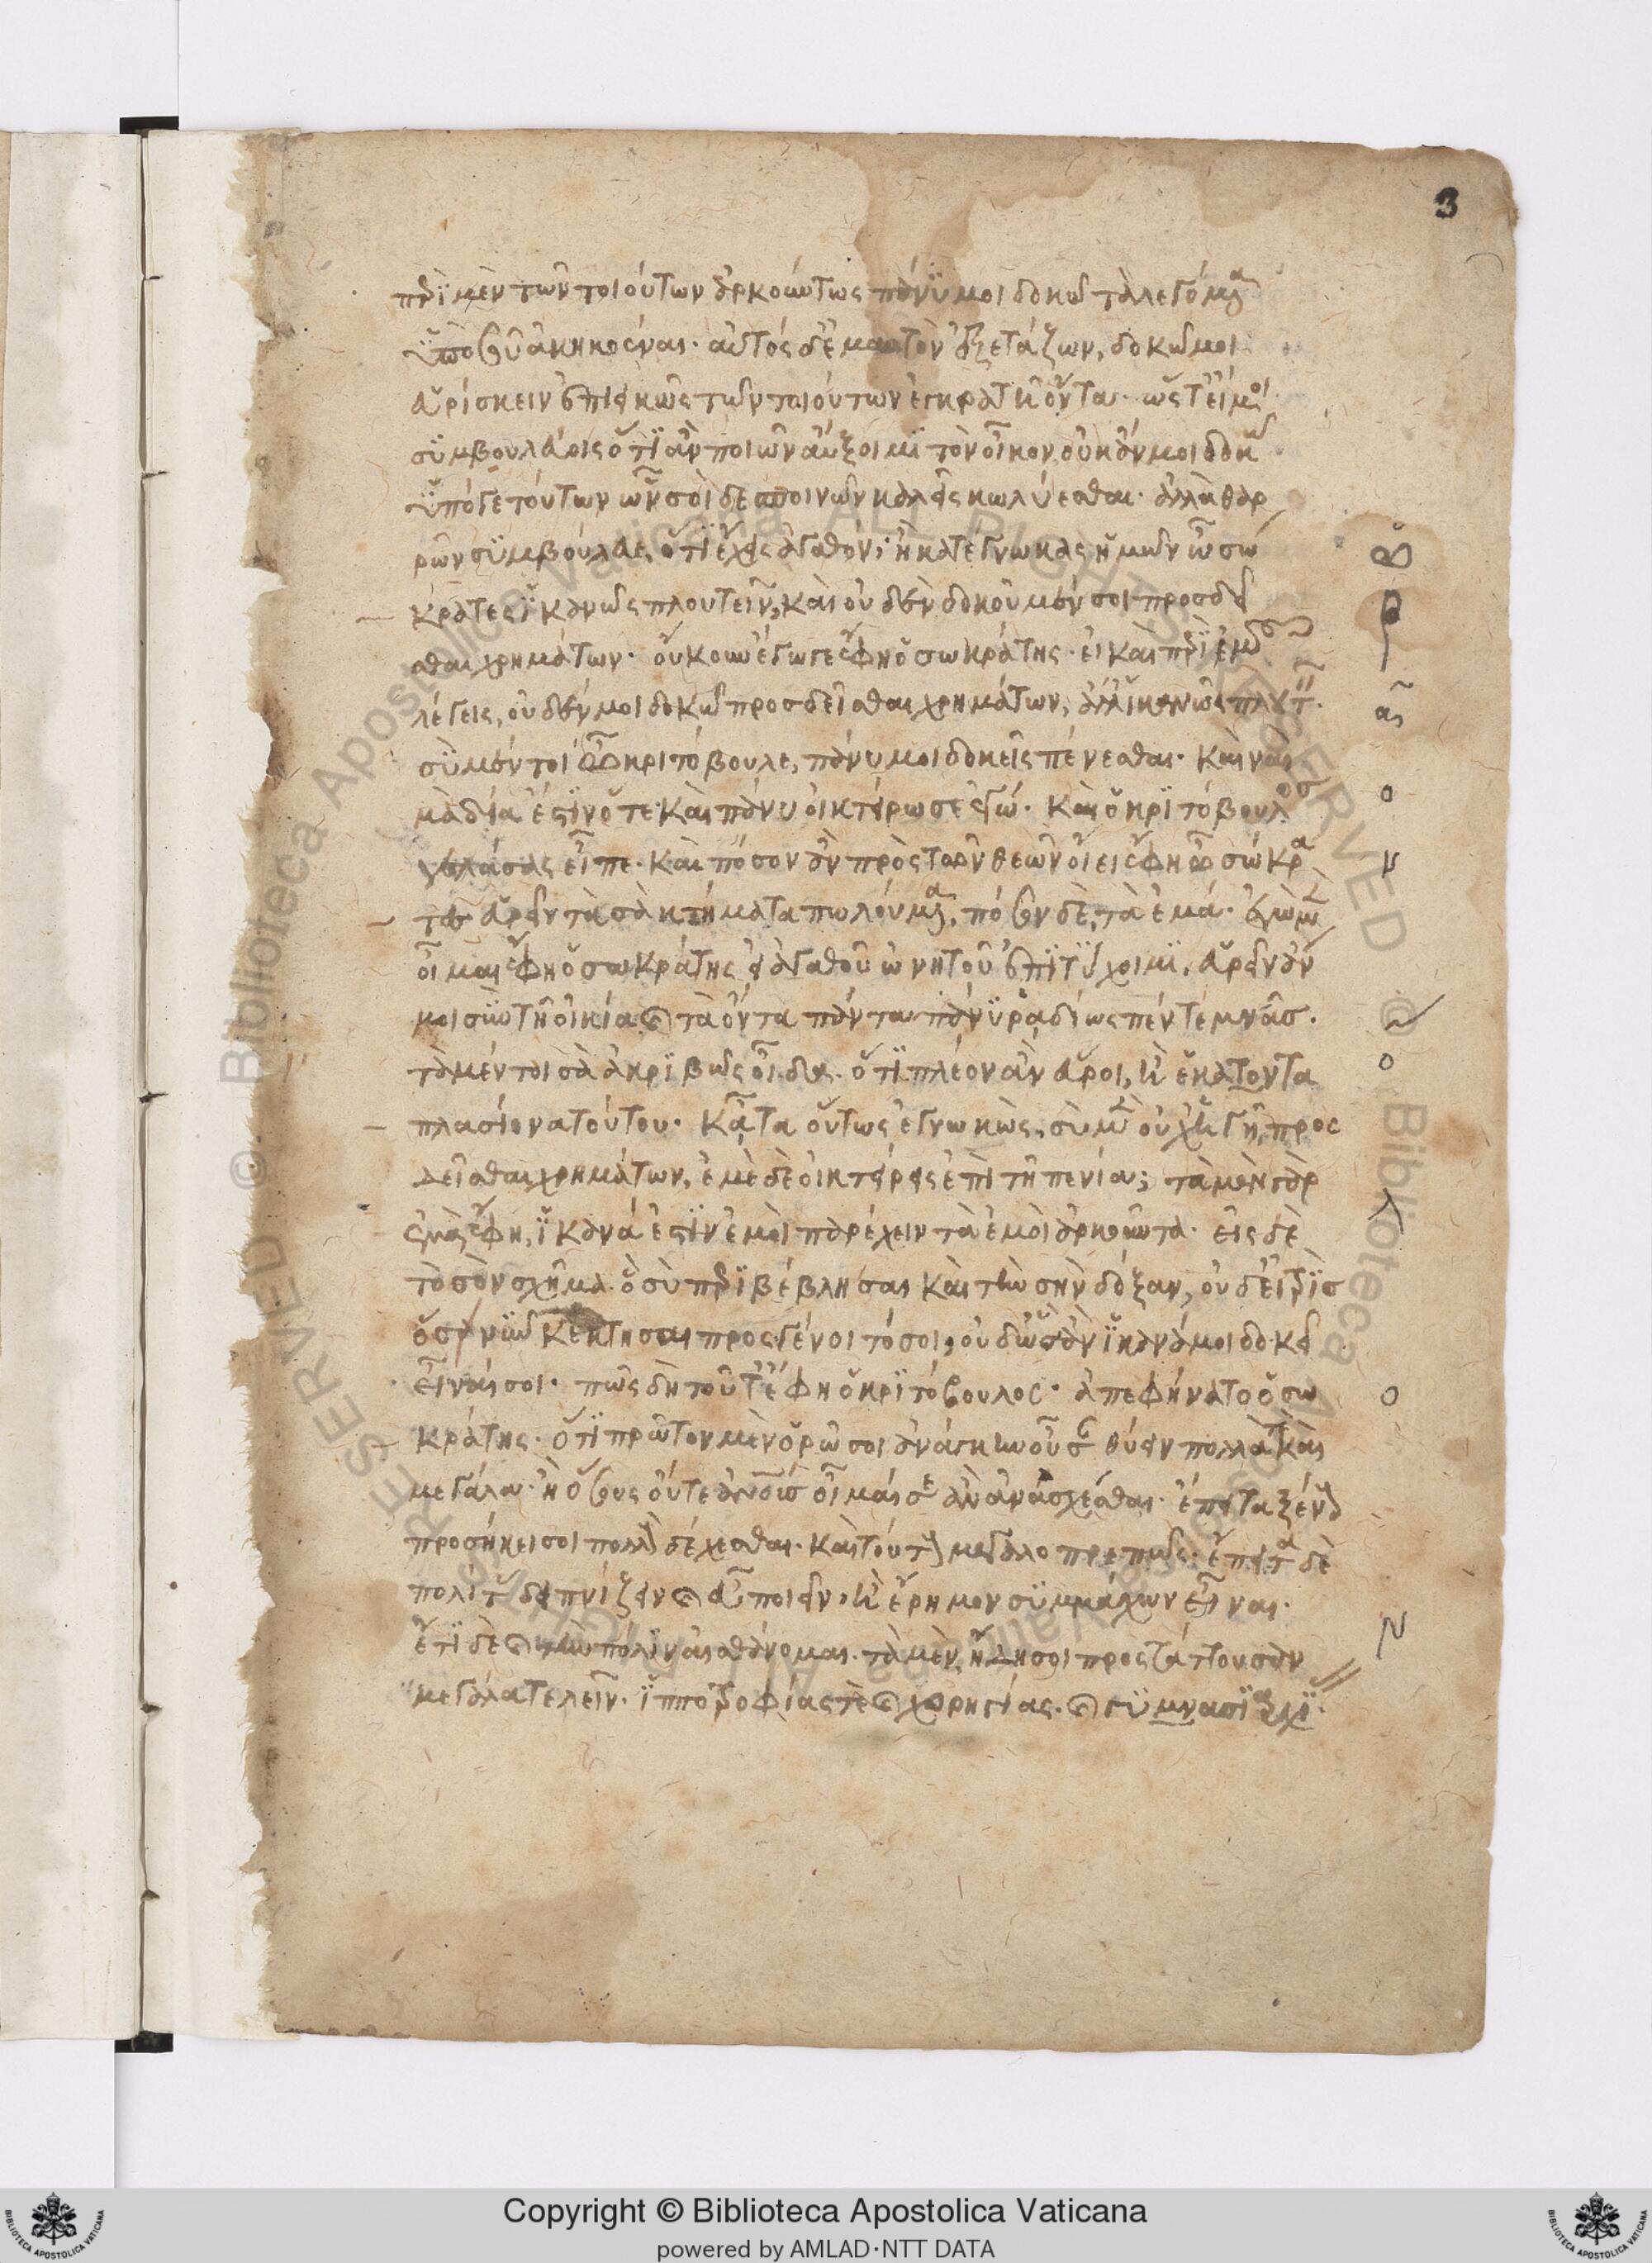 3
περὶ μὲν τῶν τοιούτων ἀρκούντως πάνυ μοι δοκῶ τὰ λεγόμενα
ὑπὸ σοῦ ἀκηκοέναι· αὐτὸς δ' ἐμαυτὸν ἐξετάζων, δοκῶ μοι
εὑρίσκειν ἐπιεικῶς τῶν τοιούτων ἐγκρατῆ ὄντα· ὥστ' εἴ μοι
συμβουλεύοις ὅτι ἂν ποιῶν αὔξοιμι τὸν οἶκον, οὐκ ἄν μοι δοκῶ
ὑπό γε τούτων ὧν σὺ δεσποινῶν καλεῖς κωλύεσθαι· ἀλλὰ θαρ
ρῶν συμβούλευε, ὅτι ἔχεις ἀγαθόν; ἢ κατέγνωκας ἡμῶν ὦ σώ
κρατες ἱκανῶς πλουτεῖν, καὶ οὐδὲν δοκοῦμέν σοι προσδεῖ
σθαι χρημάτων· οὔκουν ἔγωγε ἔφη ὁ σωκράτης· εἰ καὶ περὶ ἐμοῦ
λέγεις, οὐδέν μοι δοκῶ προσδεῖσθαι χρημάτων, ἀλλ' ἱκανῶς πλουτεῖν·
σὺ μέντοι ὦ κριτόβουλε, πάνυ μοι δοκεῖς πένεσθαι· καὶ ναὶ
μὰ δία ἔστιν ὅτε καὶ πάνυ οἰκτείρω σε ἐγώ· καὶ ὁ κριτόβουλος
γελάσας εἶπε· καὶ πόσον ἂν πρὸς τῶν θεῶν οἴει ἔφη ὦ σώκρα
τες εὑρεῖν τὰ σὰ κτήματα πωλούμενα, πόσον δὲ, τὰ ἐμά· ἐγὼ μὲν
οἶμαι ἔφη ὁ σωκράτης εἰ ἀγαθοῦ ὠνητοῦ ἐπιτύχοιμι, εὑρεῖν ἄν
μοι σὺν τῇ οἰκίᾳ καὶ τὰ ὄντα πάντα πάνυ ῥᾳδίως πέντε μνᾶς·
τὰ μέντοι σὰ ἀκριβῶς οἶδα ὅτι πλέον ἂν εὕροι, ἢ ἑκατοντα
πλασίονα τούτου· κᾆτα οὕτως ἐγνωκὼς, σὺ μὲν οὐχ ἡγῇ προς
δεῖσθαι χρημάτων, ἐμὲ δὲ οἰκτείρεις ἐπὶ τῇ πενίᾳ; τὰ μὲν γὰρ
ἐμὰ ἔφη, ἱκανά ἐστιν ἐμοὶ παρέχειν τὰ ἐμοὶ ἀρκοῦντα· εἰς δὲ
τὸ σὸν σχῆμα ὃ σὺ περιβέβλησαι καὶ τὴν σὴν δόξαν, οὐδ' εἰ τρὶς
ὅσα νῦν κέκτησαι προσγένοιτό σοι, οὐδ' ὣς ἂν ἱκανά μοι δοκεῖ
εἶναί σοι· πῶς δὴ τοῦτ' ἔφη ὁ κριτόβουλος· ἀπεφήνατο ὁ σω
κράτης· ὅτι πρῶτον μὲν ὁρῶ σοι ἀνάγκην οὖσαν θύειν πολλά τε καὶ
μεγάλα· ἢ οὔτε θεοὺς οὔτε ἀνθρώπους οἶμαί σε ἂν ἀνασχέσθαι· ἔπειτα ξένους
προσήκει σοι πολλοὺς δέχεσθαι· καὶ τούτους μεγαλοπρεπῶς· ἔπειτα δὲ
πολίτας δειπνίζειν καὶ εὖ ποιεῖν, ἢ ἔρημον συμμάχων εἶναι·
ἔτι δὲ καὶ τὴν πόλιν αἰσθάνομαι τὰ μὲν ἤδη σοι προστάττουσαν
μεγάλα τελεῖν· ἱπποτροφίας τε καὶ χορηγίας· καὶ γυμνασιαρχίας
Copyright © Biblioteca Apostolica Vaticana
powered by AMLAD·NTT DATA